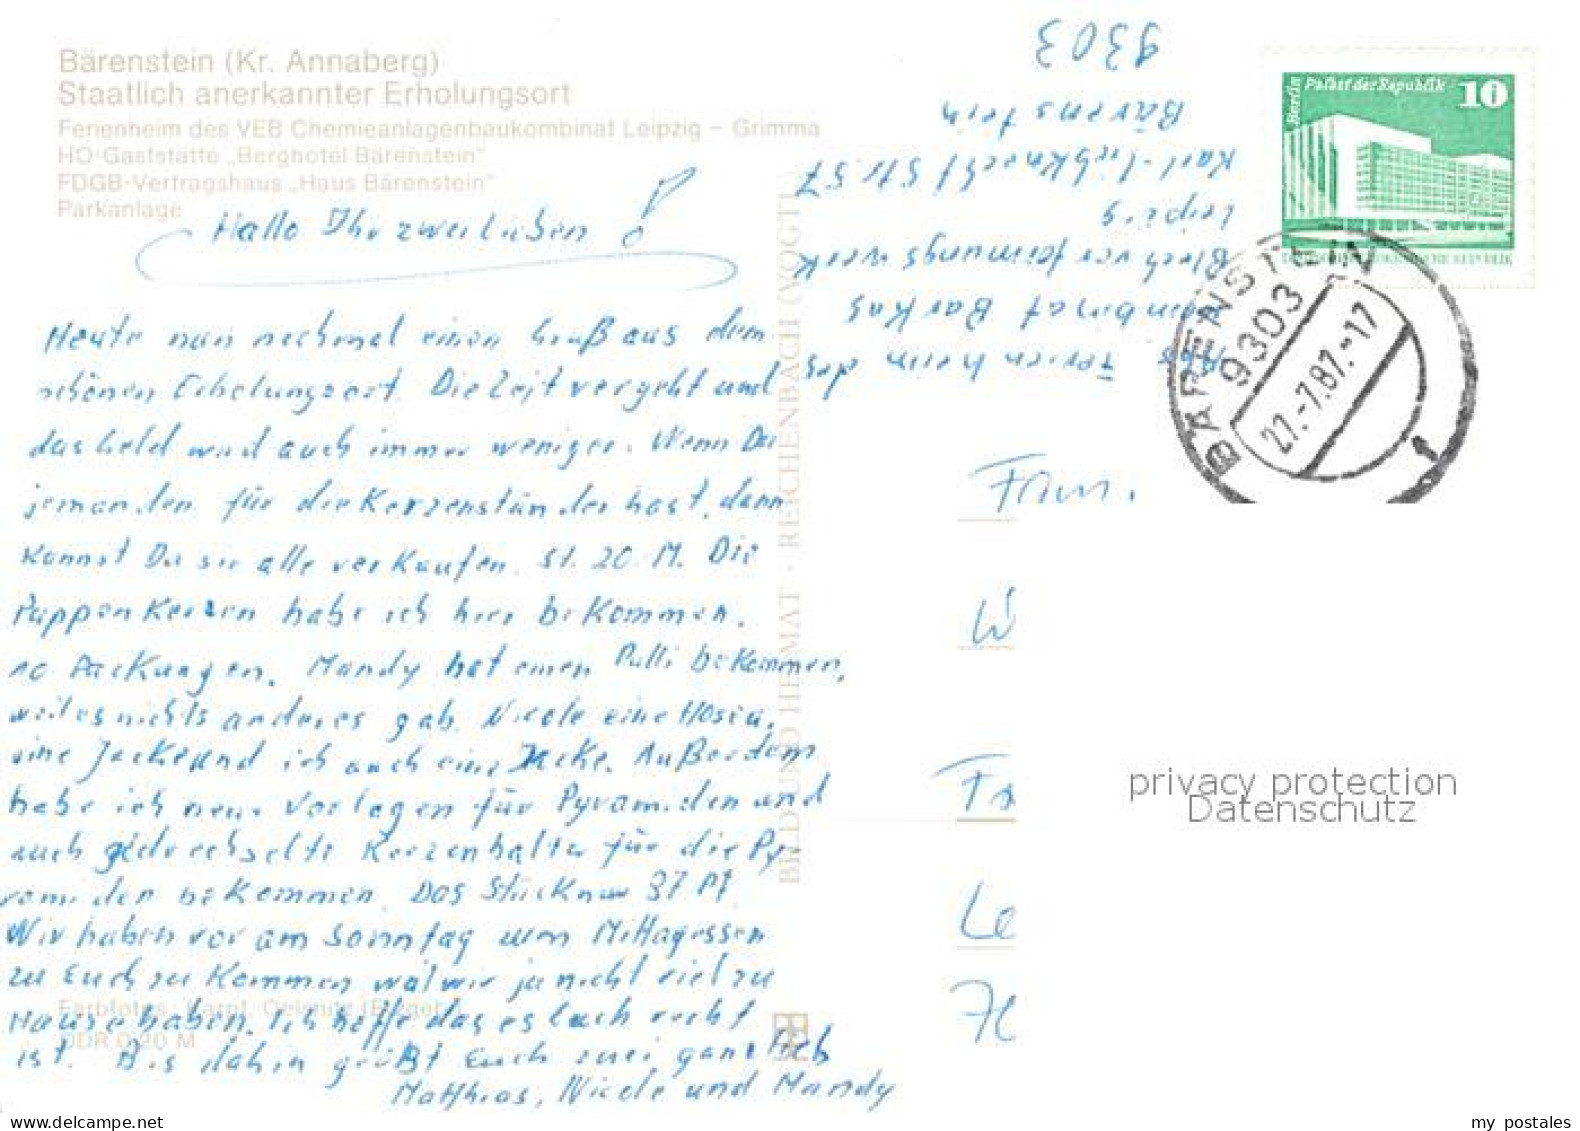 Bärenstein (Kr. Annaberg)
Staatlich anerkannter Erholungsort
Ferienheim des VEB Chemieanlagenbaukombinat Leipzig – Grimma
HO-Gaststätte „Berghotel Bärenstein"
FDGB-Vertragshaus „Haus Bärenstein"
Parkanlage
Hallo Ihr zwei lieben !
Heute nun nochmal einen Gruß aus dem
schönen Erholungsort. Die Zeit vergeht und
das Geld wird auch immer weniger. Wenn Du
jemanden für die Kerzenständer hast, dann
kannst Du sie alle verkaufen. St. 20. M. Die
Puppenkerzen habe ich hier bekommen.
10 Packungen. Mandy hat einen Pulli bekommen,
weil es nichts anderes gab. Nicole eine Hose u.
eine Jacke und ich auch eine Jacke. Außerdem
habe ich neue Vorlagen für Pyramiden und
auch gedrechselte Kerzenhalter für die Py-
ramiden bekommen. Das Stück nur 37 Pf.
Wir haben vor am Sonntag zum Mittagessen
zu Euch zu kommen weil wir ja nicht viel zu
Hause haben. Ich hoffe das es Euch recht
ist. Bis dahin grüßt Euch zwei ganz lieb
Matthias, Nicole und Mandy
Farbfotos: Karpf, Oelsnitz (Erzgeb.)
DDR 0,20 M
BILD UND HEIMAT · REICHENBACH (VOGTL)
Ferienheim des
Kombinat Barkas
Blechverformungswerk
Leipzig
Karl-Liebknecht Str. 57
Bärenstein
9303
Berlin Palast der Republik 10
DEUTSCHE DEMOKRATISCHE REPUBLIK
BÄRENSTEIN
9303
27.-7.87.-17
f
Fam.
W
Fr
Le
70
privacy protection
Datenschutz
www.delcampe.net
my postales